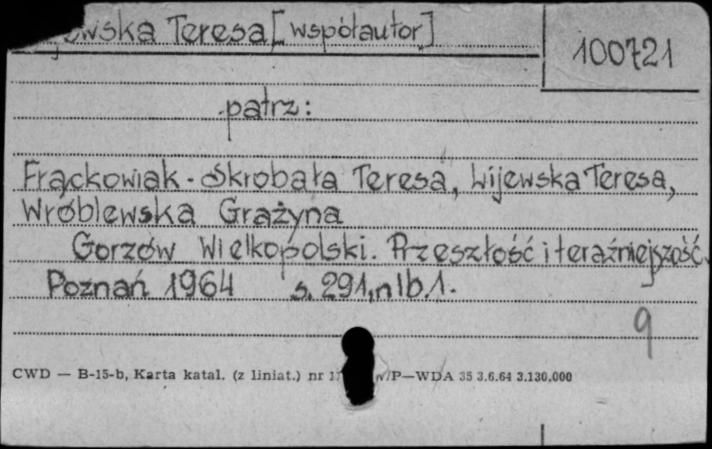 Teresa [współautor]
100721
patrz:
Frąckowiak-Skrobała Teresa, Lijewska Teresa,
Wróblewska Grażyna
Gorzów Wielkopolski. Przeszłość i teraźniejszość.
Poznań 1964 s. 291, nlb. 1.
9
CWD — B-15-b, Karta katal. (z liniat.) nr /P—WDA 35 3.6.64 3.130,000